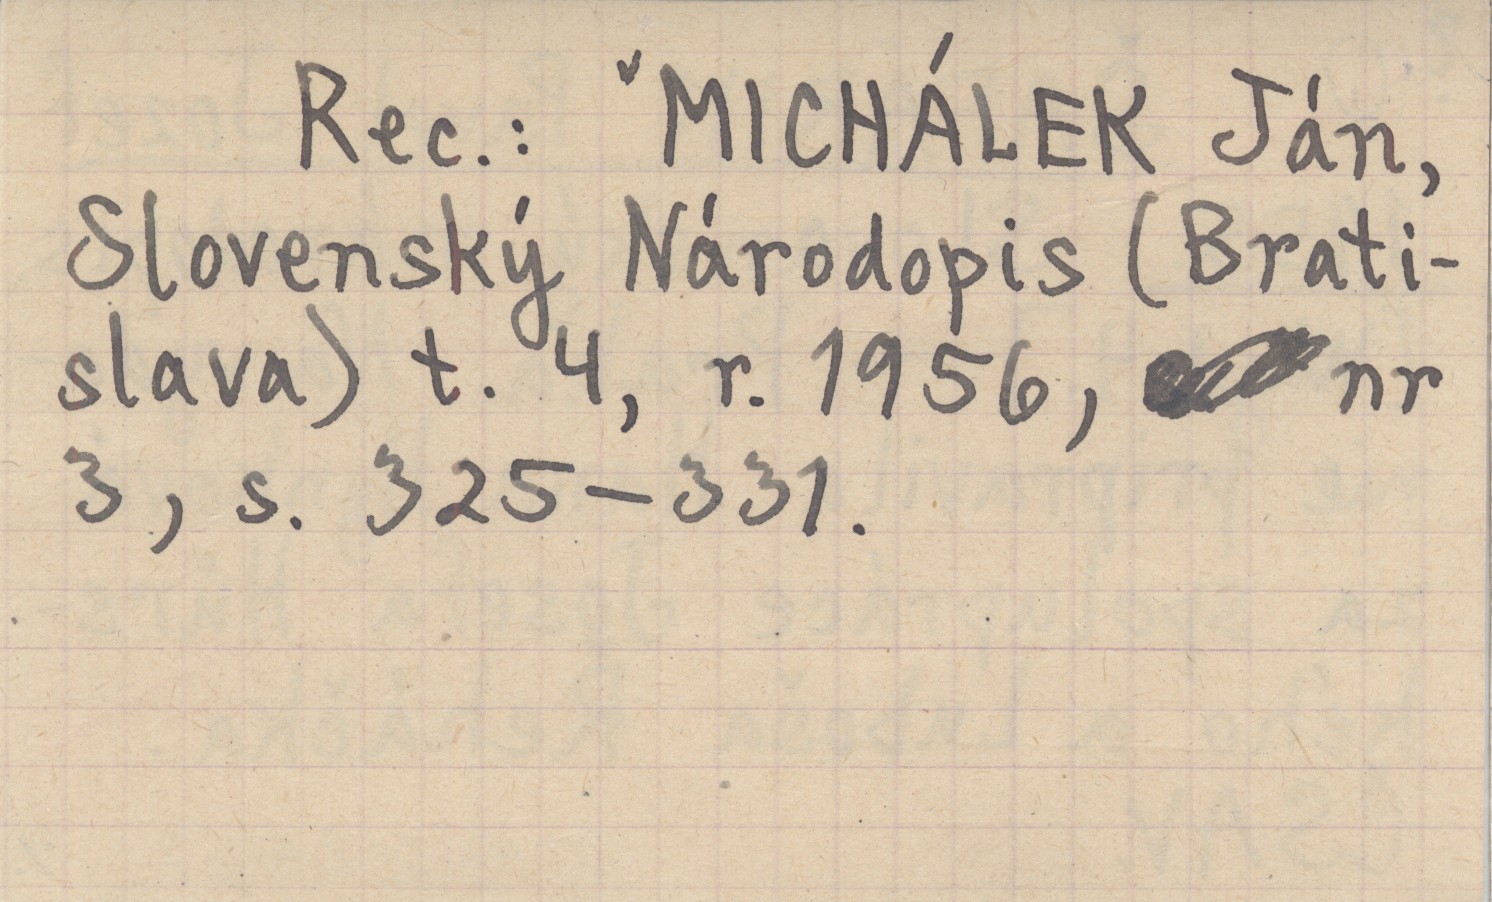 Rec.: ˇMICHÁLEK Ján,
Slovenský Národopis (Brati-
slava) t. 4, r. 1956, nr
3, s. 325–331.